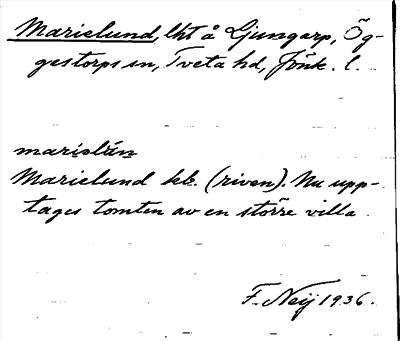 Marielund, lht å Ljungarp, Ög-
gestorps sn, Tveta hd, Jönk. l.
marislún
Marielund kk. (riven). Nu upp-
tages tomten av en större villa.
F. Neij 1936.